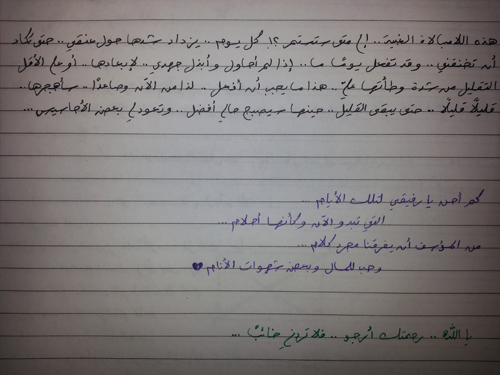 هذه اللامبالاة الغبية.. إلى متى ستستمر ؟! كل يوم.. يزداد شدها حول عنقي.. حتى تكاد
أن تخنقني.. وقد تفعل يومًا ما.. إذا لم أحاول وأبذل جهدي.. لإبعادها.. أو على الأقل
التقليل من شدة وطأتها عليّ.. هذا ما يجب أن أفعل.. لذا من الآن وصاعدًا.. سأهجرها..
قليلًا قليلًا.. حتى يبقى القليل.. حينها سيصبح حالي أفضل.. وتعود لي بعض الأحاسيس...
كم أحن يا رفيقي لتلك الأيام...
التي تبدو الآن وكأنها أحلام...
من المؤسف أن يفرقنا مجرد كلام...
وحب للمال وبعض شهوات الأنام
يا الله.. رحمتك أرجو.. فلا تردني خائبًا...